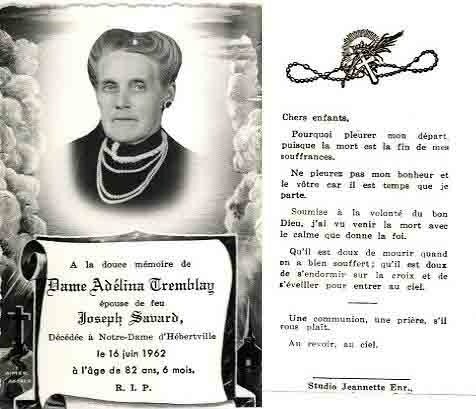 A la douce mémoire de
Dame Adélina Tremblay
épouse de feu
Joseph Savard,
Décédée à Notre-Dame d'Hébertville
le 16 juin 1962
à l'âge de 82 ans, 6 mois.
R. I. P.
Chers enfants,
Pourquoi pleurer mon départ
puisque la mort est la fin de mes
souffrances.
Ne pleurez pas mon bonheur et
le vôtre car il est temps que je
parte.
Soumise à la volonté du bon
Dieu, j'ai vu venir la mort avec
le calme que donne la foi.
Qu'il est doux de mourir quand
on a bien souffert; qu'il est doux
de s'endormir sur la croix et de
s'éveiller pour entrer au ciel.
Une communion, une prière, s'il
vous plaît.
Au revoir, au ciel.
Studio Jeannette Enr.,